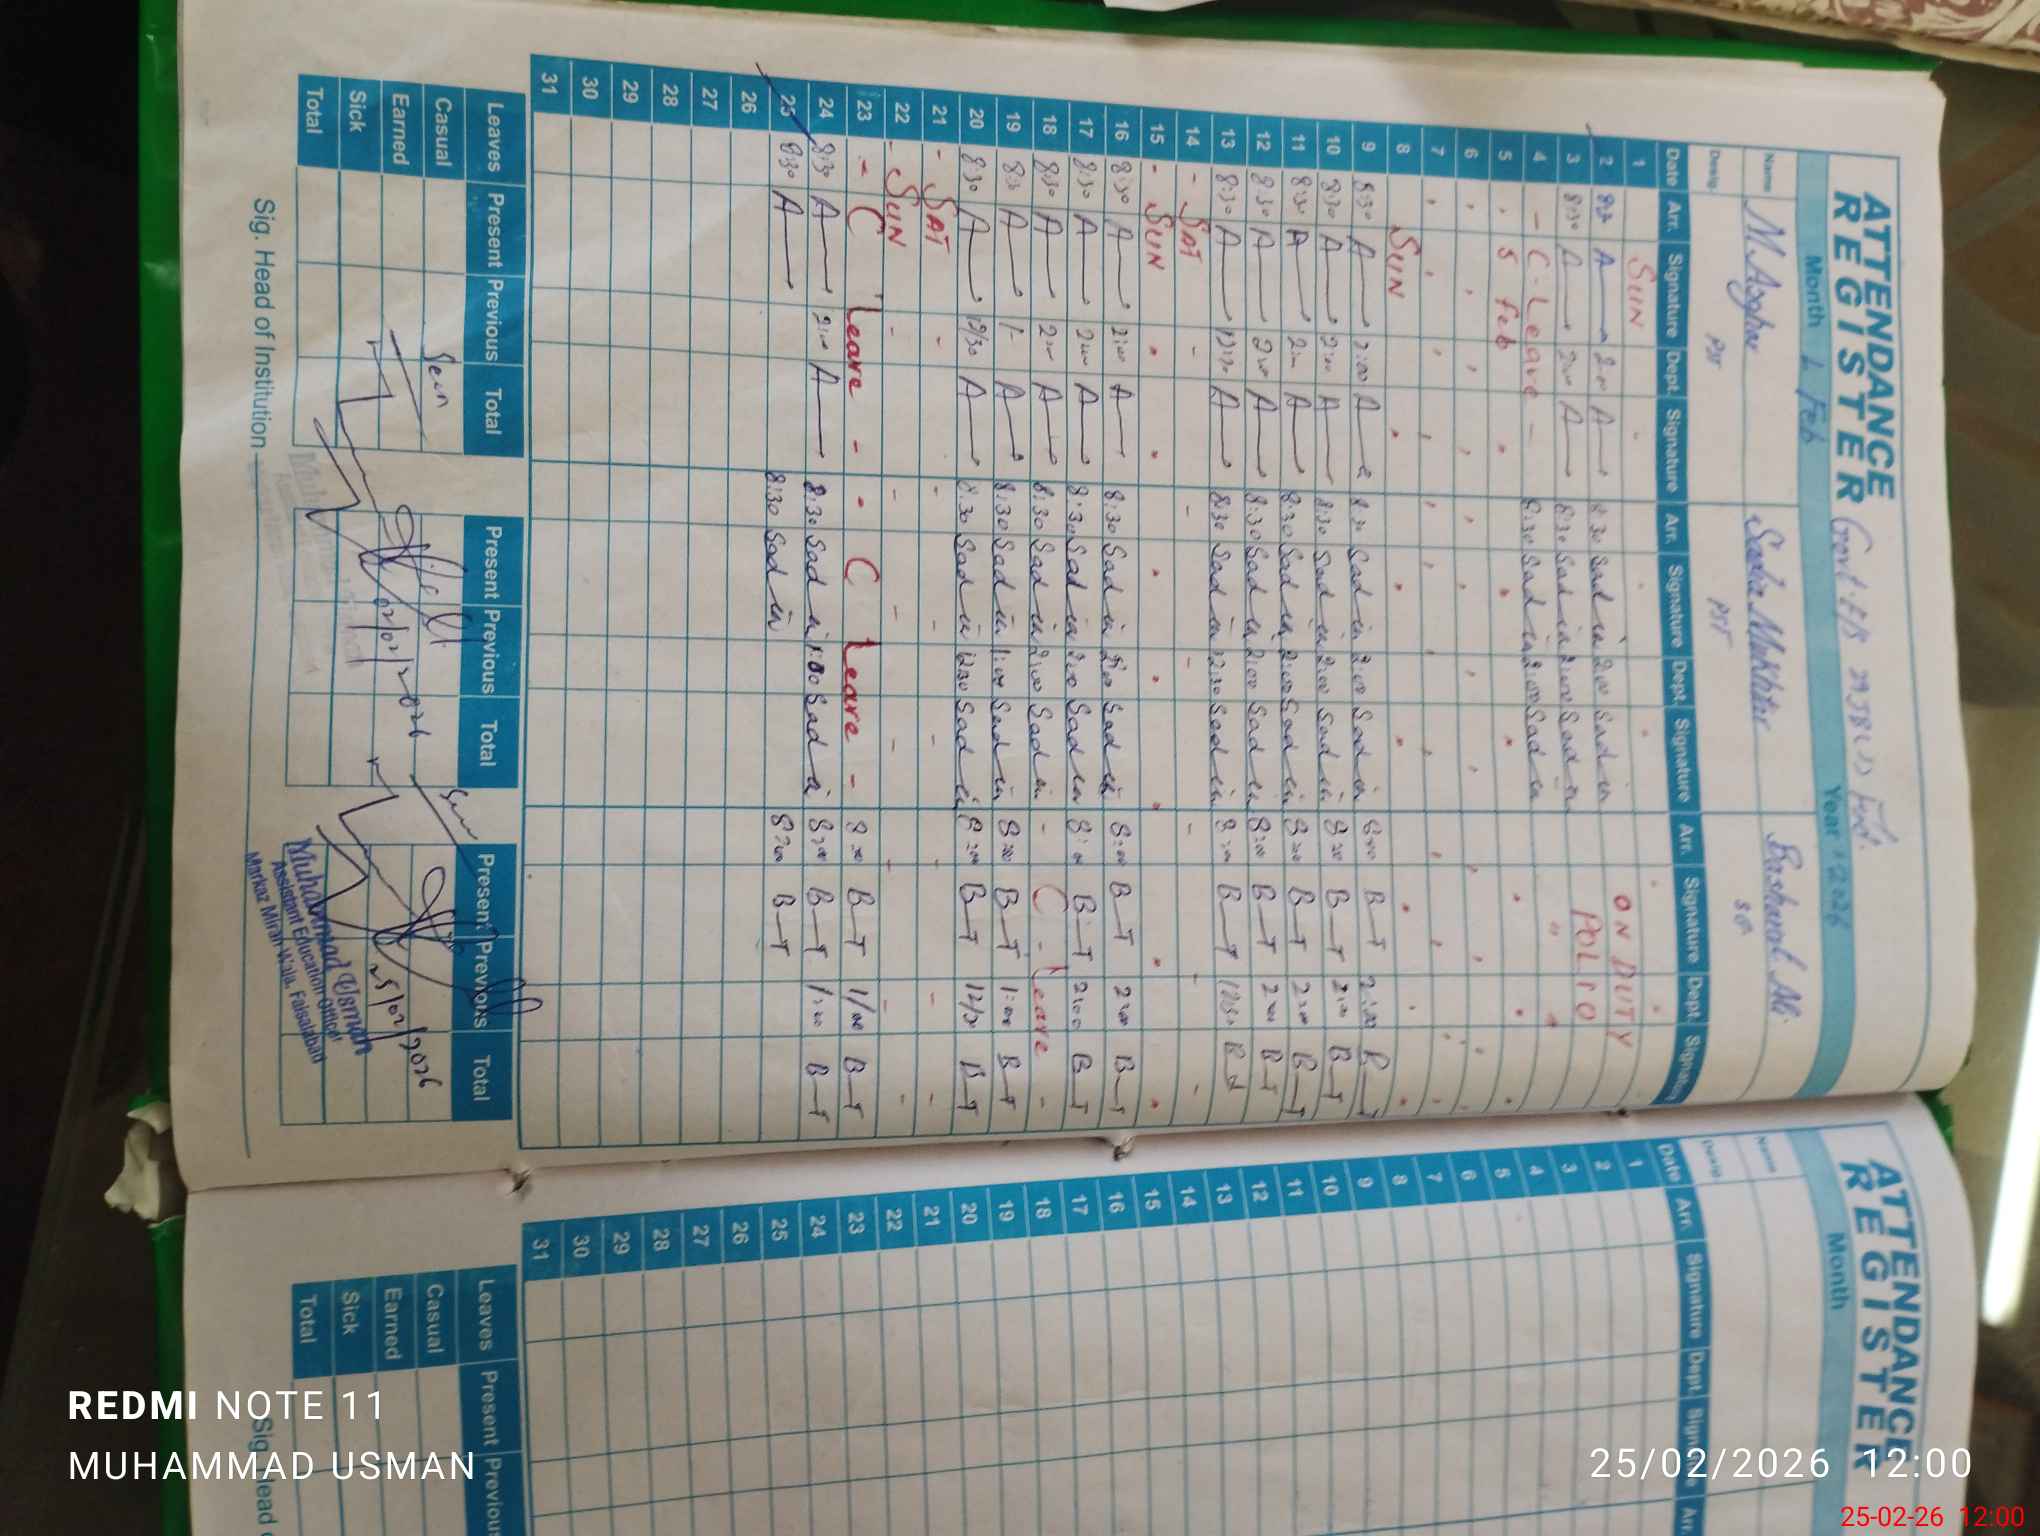 ATTENDANCE
REGISTER
Month Feb Year 2026
Name M. Asghar Sadia Mukhtar Basharat Ali
Desig PST PST
Date Arr. Signature Dept. Signature Arr. Signature Dept. Signature Arr. Signature Dept. Signature
1 SUN
2 A 2:00 A 8:30 Sadia 2:00 Sadia ON DUTY
3 8:30 A 2:00 A 8:30 Sadia 2:00 Sadia POLIO
4 - C-Leave - 8:30 Sadia 2:00 Sadia "
5 5 Feb
6
7
8 SUN
9 8:30 A 2:00 A 8:30 Sadia 2:00 Sadia 8:00 B-T 2:00 B-T
10 8:30 A 2:00 A 8:30 Sadia 2:00 Sadia 8:00 B-T 2:00 B-T
11 8:30 A 2:00 A 8:30 Sadia 2:00 Sadia 8:00 B-T 2:00 B-T
12 8:30 A 2:00 A 8:30 Sadia 2:00 Sadia 8:00 B-T 2:00 B-T
13 8:30 A 12:30 A 8:30 Sadia 12:30 Sadia 8:00 B-T 12:30
14 - SAT - - - - -
15 - SUN
16 8:30 A 2:00 A 8:30 Sadia 2:00 Sadia 8:00 B-T 2:00 B-T
17 8:30 A 2:00 A 8:30 Sadia 2:00 Sadia 8:00 B-T 2:00 B-T
18 8:30 A 2:00 A 8:30 Sadia 2:00 Sadia - C-Leave -
19 8:30 A 1 A 8:30 Sadia 1:00 Sadia 8:00 B-T 1:00 B-T
20 8:30 A 12/30 A 8:30 Sadia 12:30 Sadia 8:00 B-T 12/30 B-T
21 - SAT - - - - - -
22 - SUN - - - - - -
23 - C Leave - - C Leave - 8:00 B-T 1/00 B-T
24 8:30 A 2:00 A 8:30 Sadia 1:00 Sadia 8:00 B-T 1:00 B-T
25 8:30 A 8:30 Sadia 8:00 B-T
26
27
28
29
30
31
Leaves Present Previous Total Present Previous Total Present Previous Total
Casual Seen Seen
Earned
Sick
Total
02/02/2026
25/02/2026
Muhammad Usman
Assistant Education Officer
Markaz Miran Wala, Faisalabad
Sig. Head of Institution
ATTENDANCE
REGISTER
Month
Name
Desig
Date Arr. Signature Dept. Signature Arr.
1
2
3
4
5
6
7
8
9
10
11
12
13
14
15
16
17
18
19
20
21
22
23
24
25
26
27
28
29
30
31
Leaves Present Previous
Casual
Earned
Sick
Total
REDMI NOTE 11
MUHAMMAD USMAN
25/02/2026 12:00
25-02-26 12:00